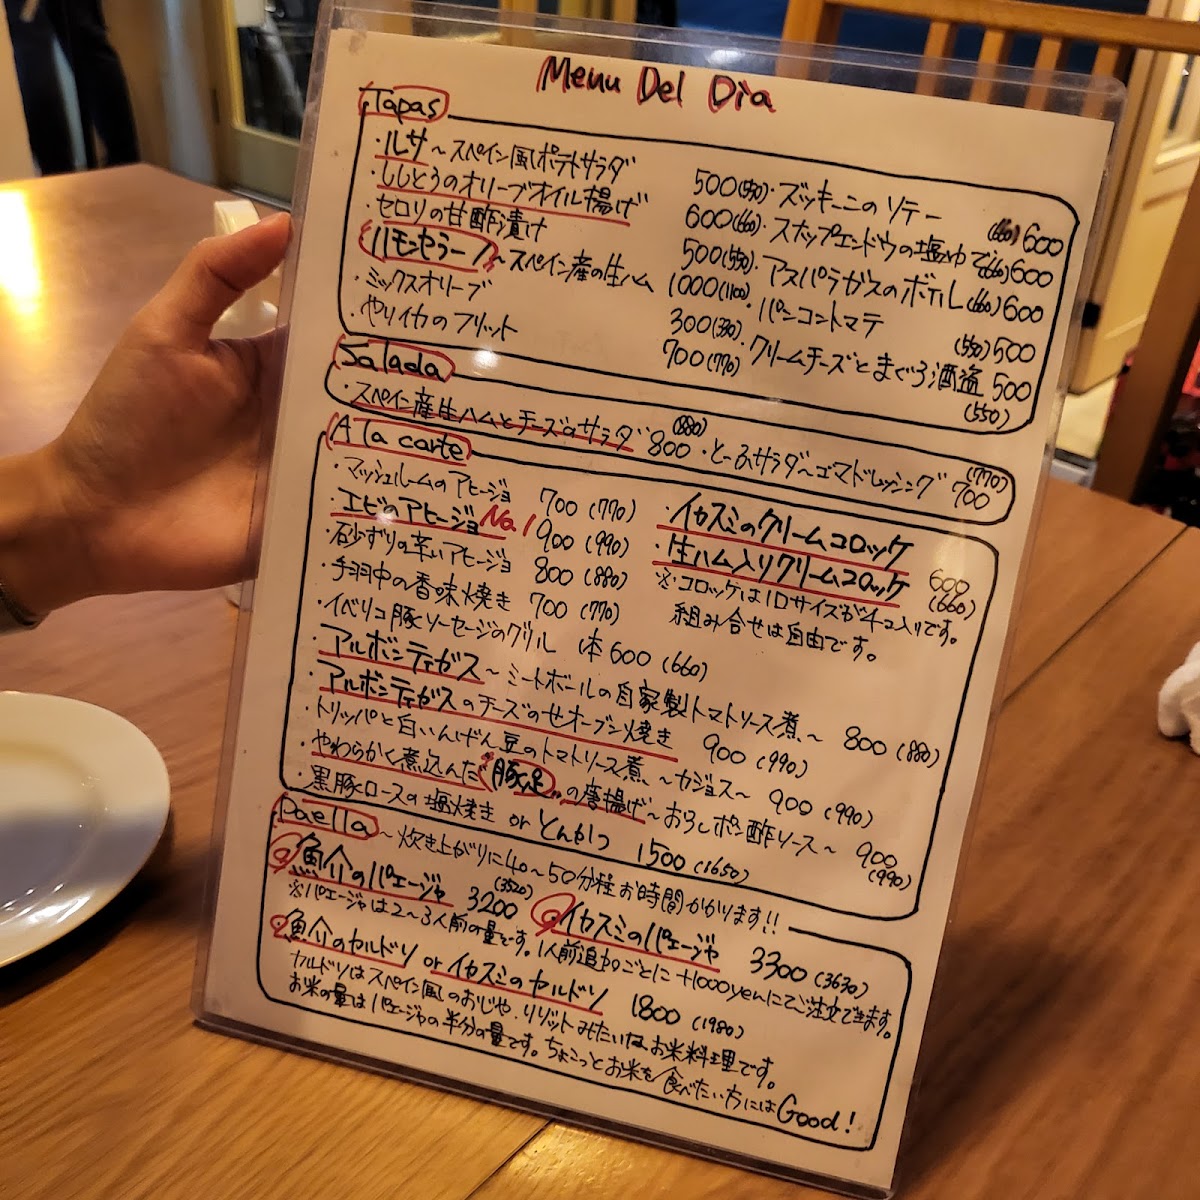 Menu Del Dia
Tapas
・ルサ～スペイン風ポテトサラダ 500(550)
・ししとうのオリーブオイル揚げ 600(660)
・セロリの甘酢漬け 500(550)
・ハモンセラーノ～スペイン産の生ハム 1000(1100)
・ミックスオリーブ 300(330)
・やりイカのフリット 700(770)
・ズッキーニのソテー (660)600
・スナップエンドウの塩ゆで(660)600
・アスパラガスのボイル(660)600
・パンコントマテ (550)500
・クリームチーズとまぐろ酒盗 500
(550)
Salada
・スペイン産生ハムとチーズのサラダ 800 (880)
・とーふサラダ～ゴマドレッシング 700 (770)
A la carte
・マッシュルームのアヒージョ 700(770)
・エビのアヒージョNo.1 900(990)
・砂ずりの辛いアヒージョ 800(880)
・手羽中の香味焼き 700(770)
・イベリコ豚ソーセージのグリル 1本600(660)
・イカスミのクリームコロッケ
・生ハム入りクリームコロッケ 600
(660)
※コロッケは1口サイズが4コ入りです。
組み合せは自由です。
・アルボンディガス～ミートボールの自家製トマトソース煮～ 800(880)
・アルボンディガスのチーズのせオーブン焼き 900(990)
・トリッパと白いんげん豆のトマトソース煮～カジョス～ 900(990)
・やわらかく煮込んだ"豚足"の唐揚げ～おろしポン酢ソース～ 900
(990)
・黒豚ロースの塩焼き or とんかつ 1500(1650)
Paella～炊き上がりに40～50分程お時間かかります!!
魚介のパエージャ 3200 (3520)
イカスミのパエージャ 3300(3630)
※パエージャは2～3人前の量です。1人前追加ごとに+1000yenにてご注文できます。
魚介のカルドソ or イカスミのカルドソ 1800(1980)
カルドソはスペイン風のおじや、リゾットみたいなお米料理です。
お米の量はパエージャの半分の量です。ちょこっとお米を食べたい方にはGood!